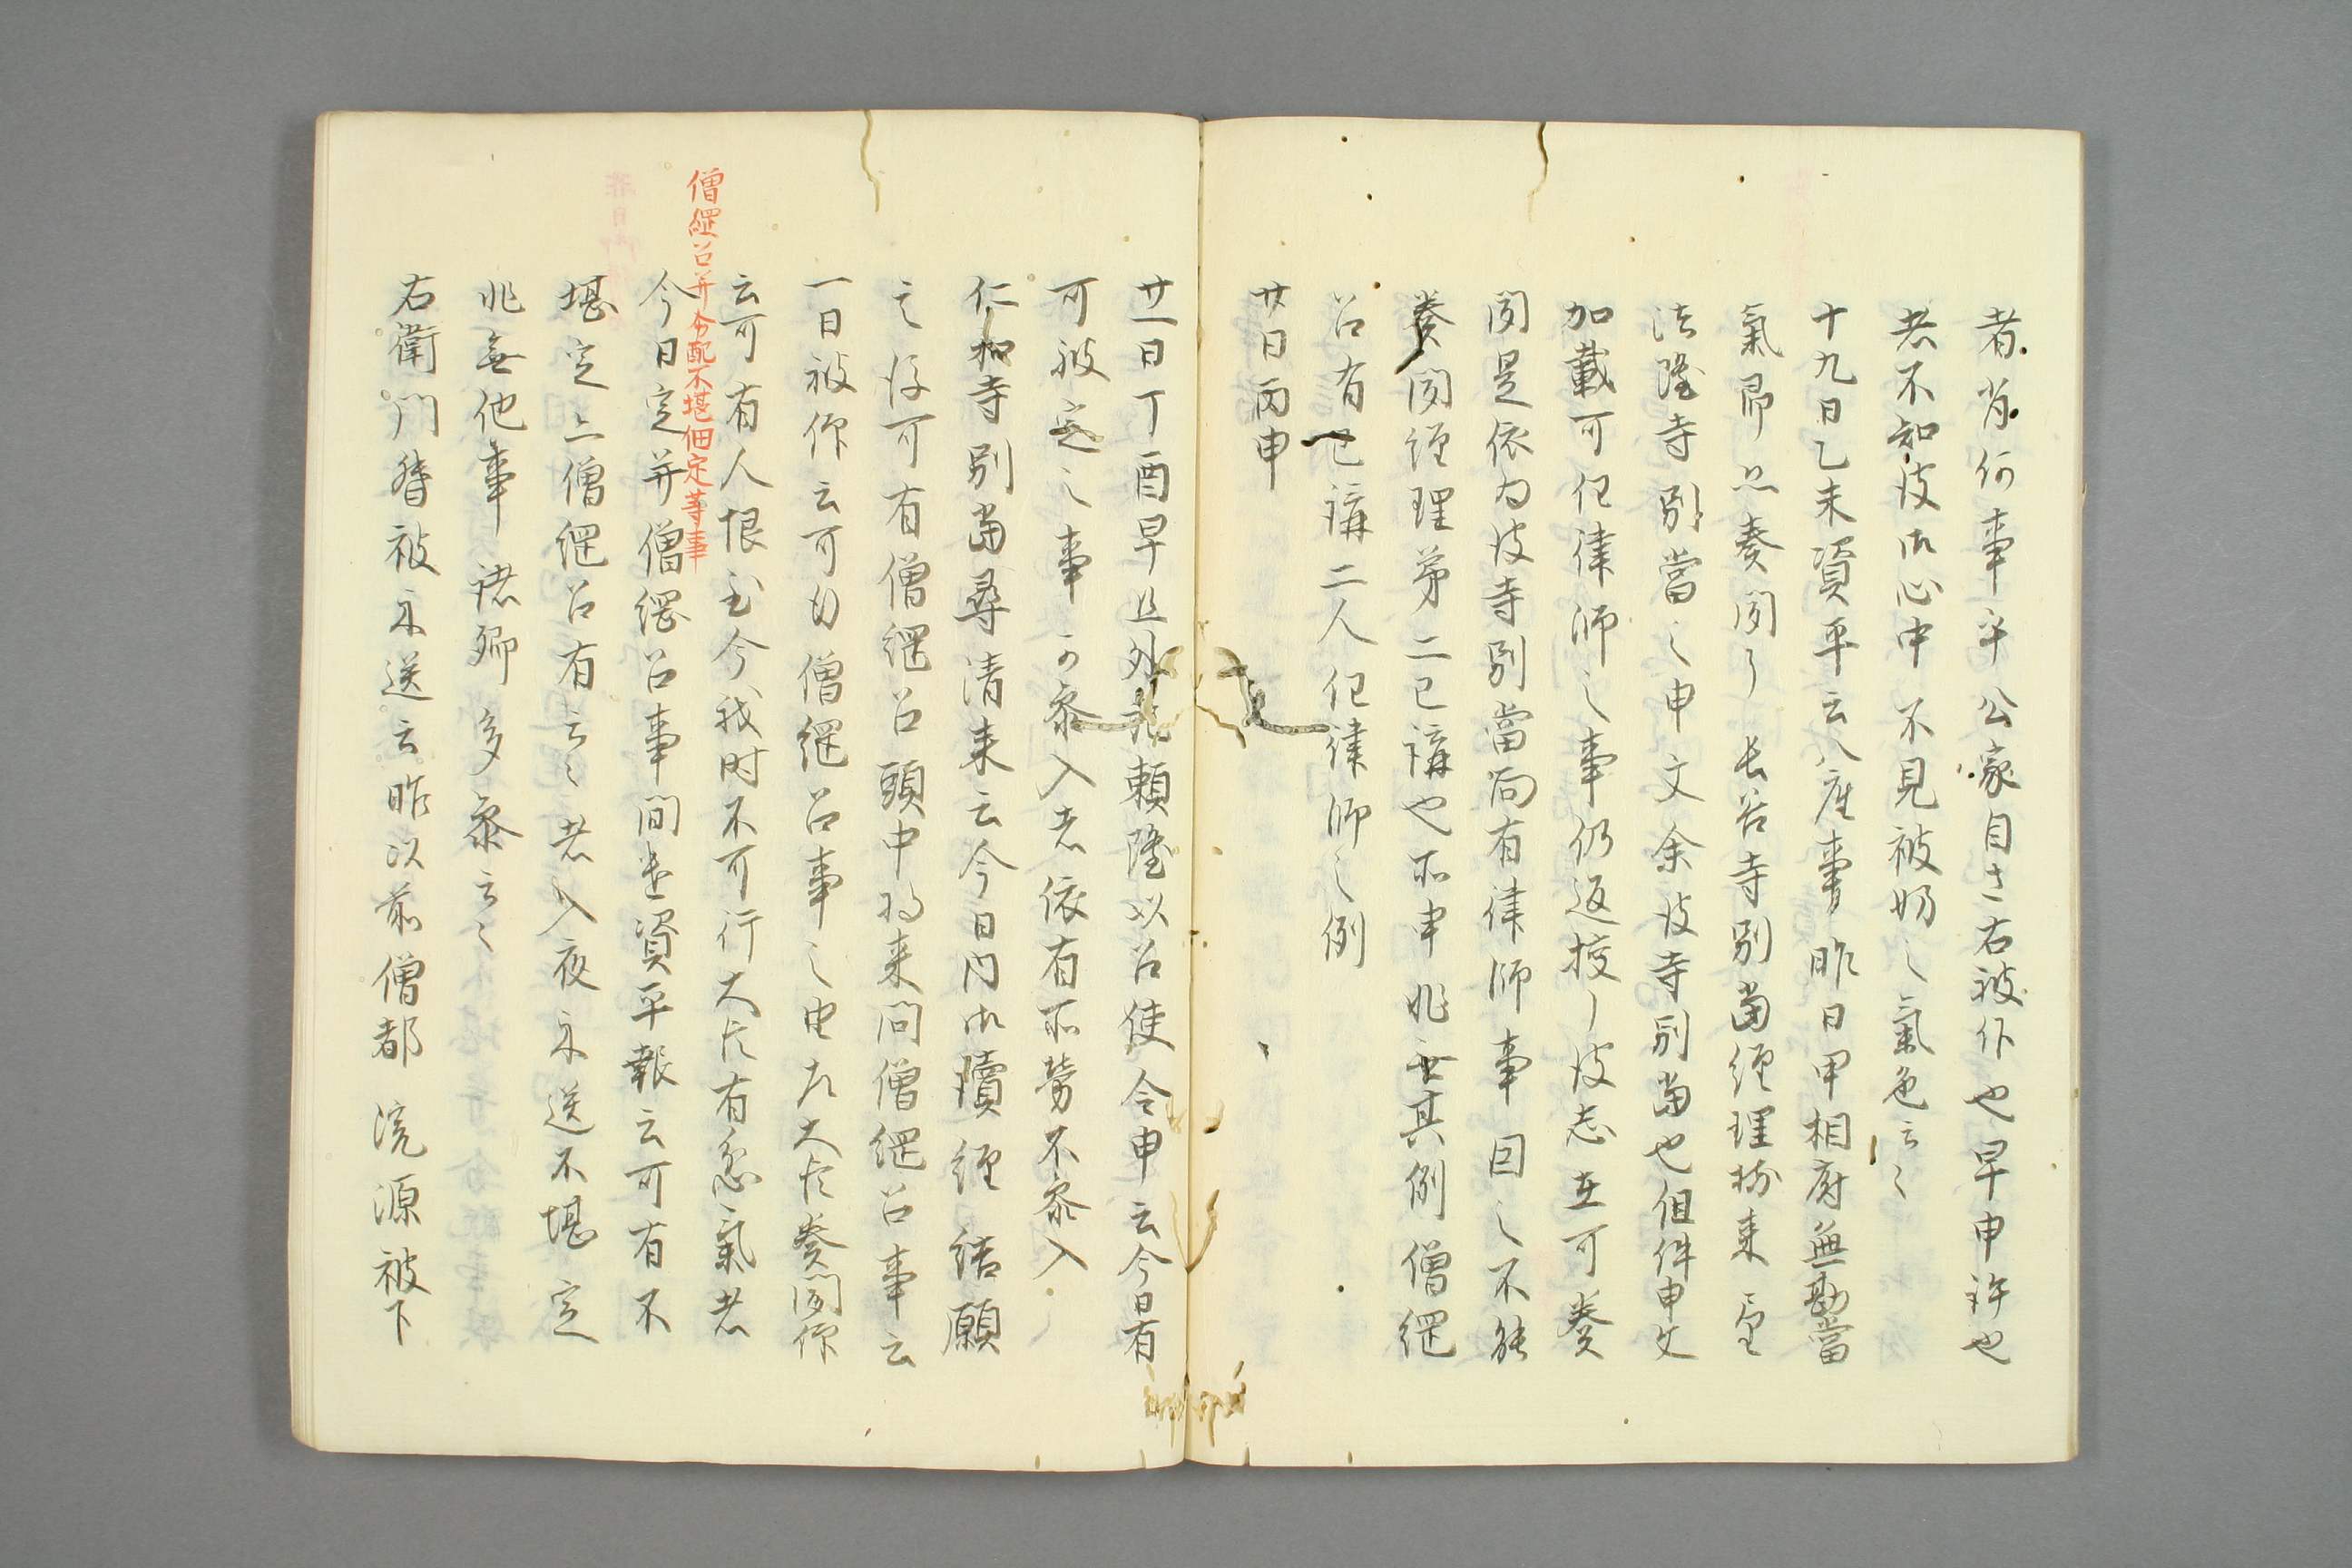 者肖何事乎公家自さ右被仰也早申許也
者不知彼御心中不見被妨之氣色云々
十九日乙未資平云八座事昨日申相府無勘當
氣即品奏聞了長谷寺別當經理樹来
法隆寺別當之申文余彼寺別當也但件申文
加載可任律師之事仍返授了彼志在可奏
聞是依為彼寺別當尚有律師事因之不能
奏聞經理第二已講也所申非無其例僧綱
召有已講二人任律師之例
廿日丙申
廿一日丁酉早旦外記頼隆以召使令申云今日有
可被定之事可參入者依有所勞不參入
仁和寺別當尋清来云今日内御讀經結願
之後可有僧綱召頭中将来問僧綱召事云
一日被仰云可為僧綱召事之由左大臣奏聞仰
云可有人恨至今我时不可行大臣有怒氣者
僧綱召并令配不堪佃定等事
今日定并僧綱召事問遣資平報云可有不
堪定亦僧綱召有云々者入夜示送不堪定
非無他事諸卿多參云々
右衛門督被示送云昨以前僧都浣源被下